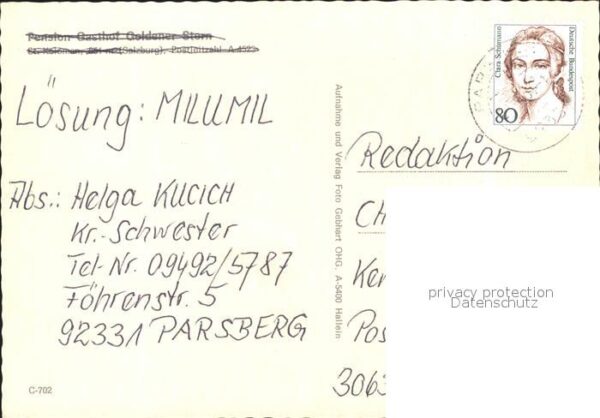 Pension Gasthof Goldener Stern
Lösung: MILUMIL
Abs.: Helga KUCICH
Kr.-Schwester
Tel-Nr. 09492/5787
Föhrenstr. 5
92331 PARSBERG
C-702
Aufnahme und Verlag Foto Gebhart OHG. A-5400 Hallein
Clara Schumann
Deutsche Bundespost
80
Redaktion
privacy protection
Datenschutz
3063